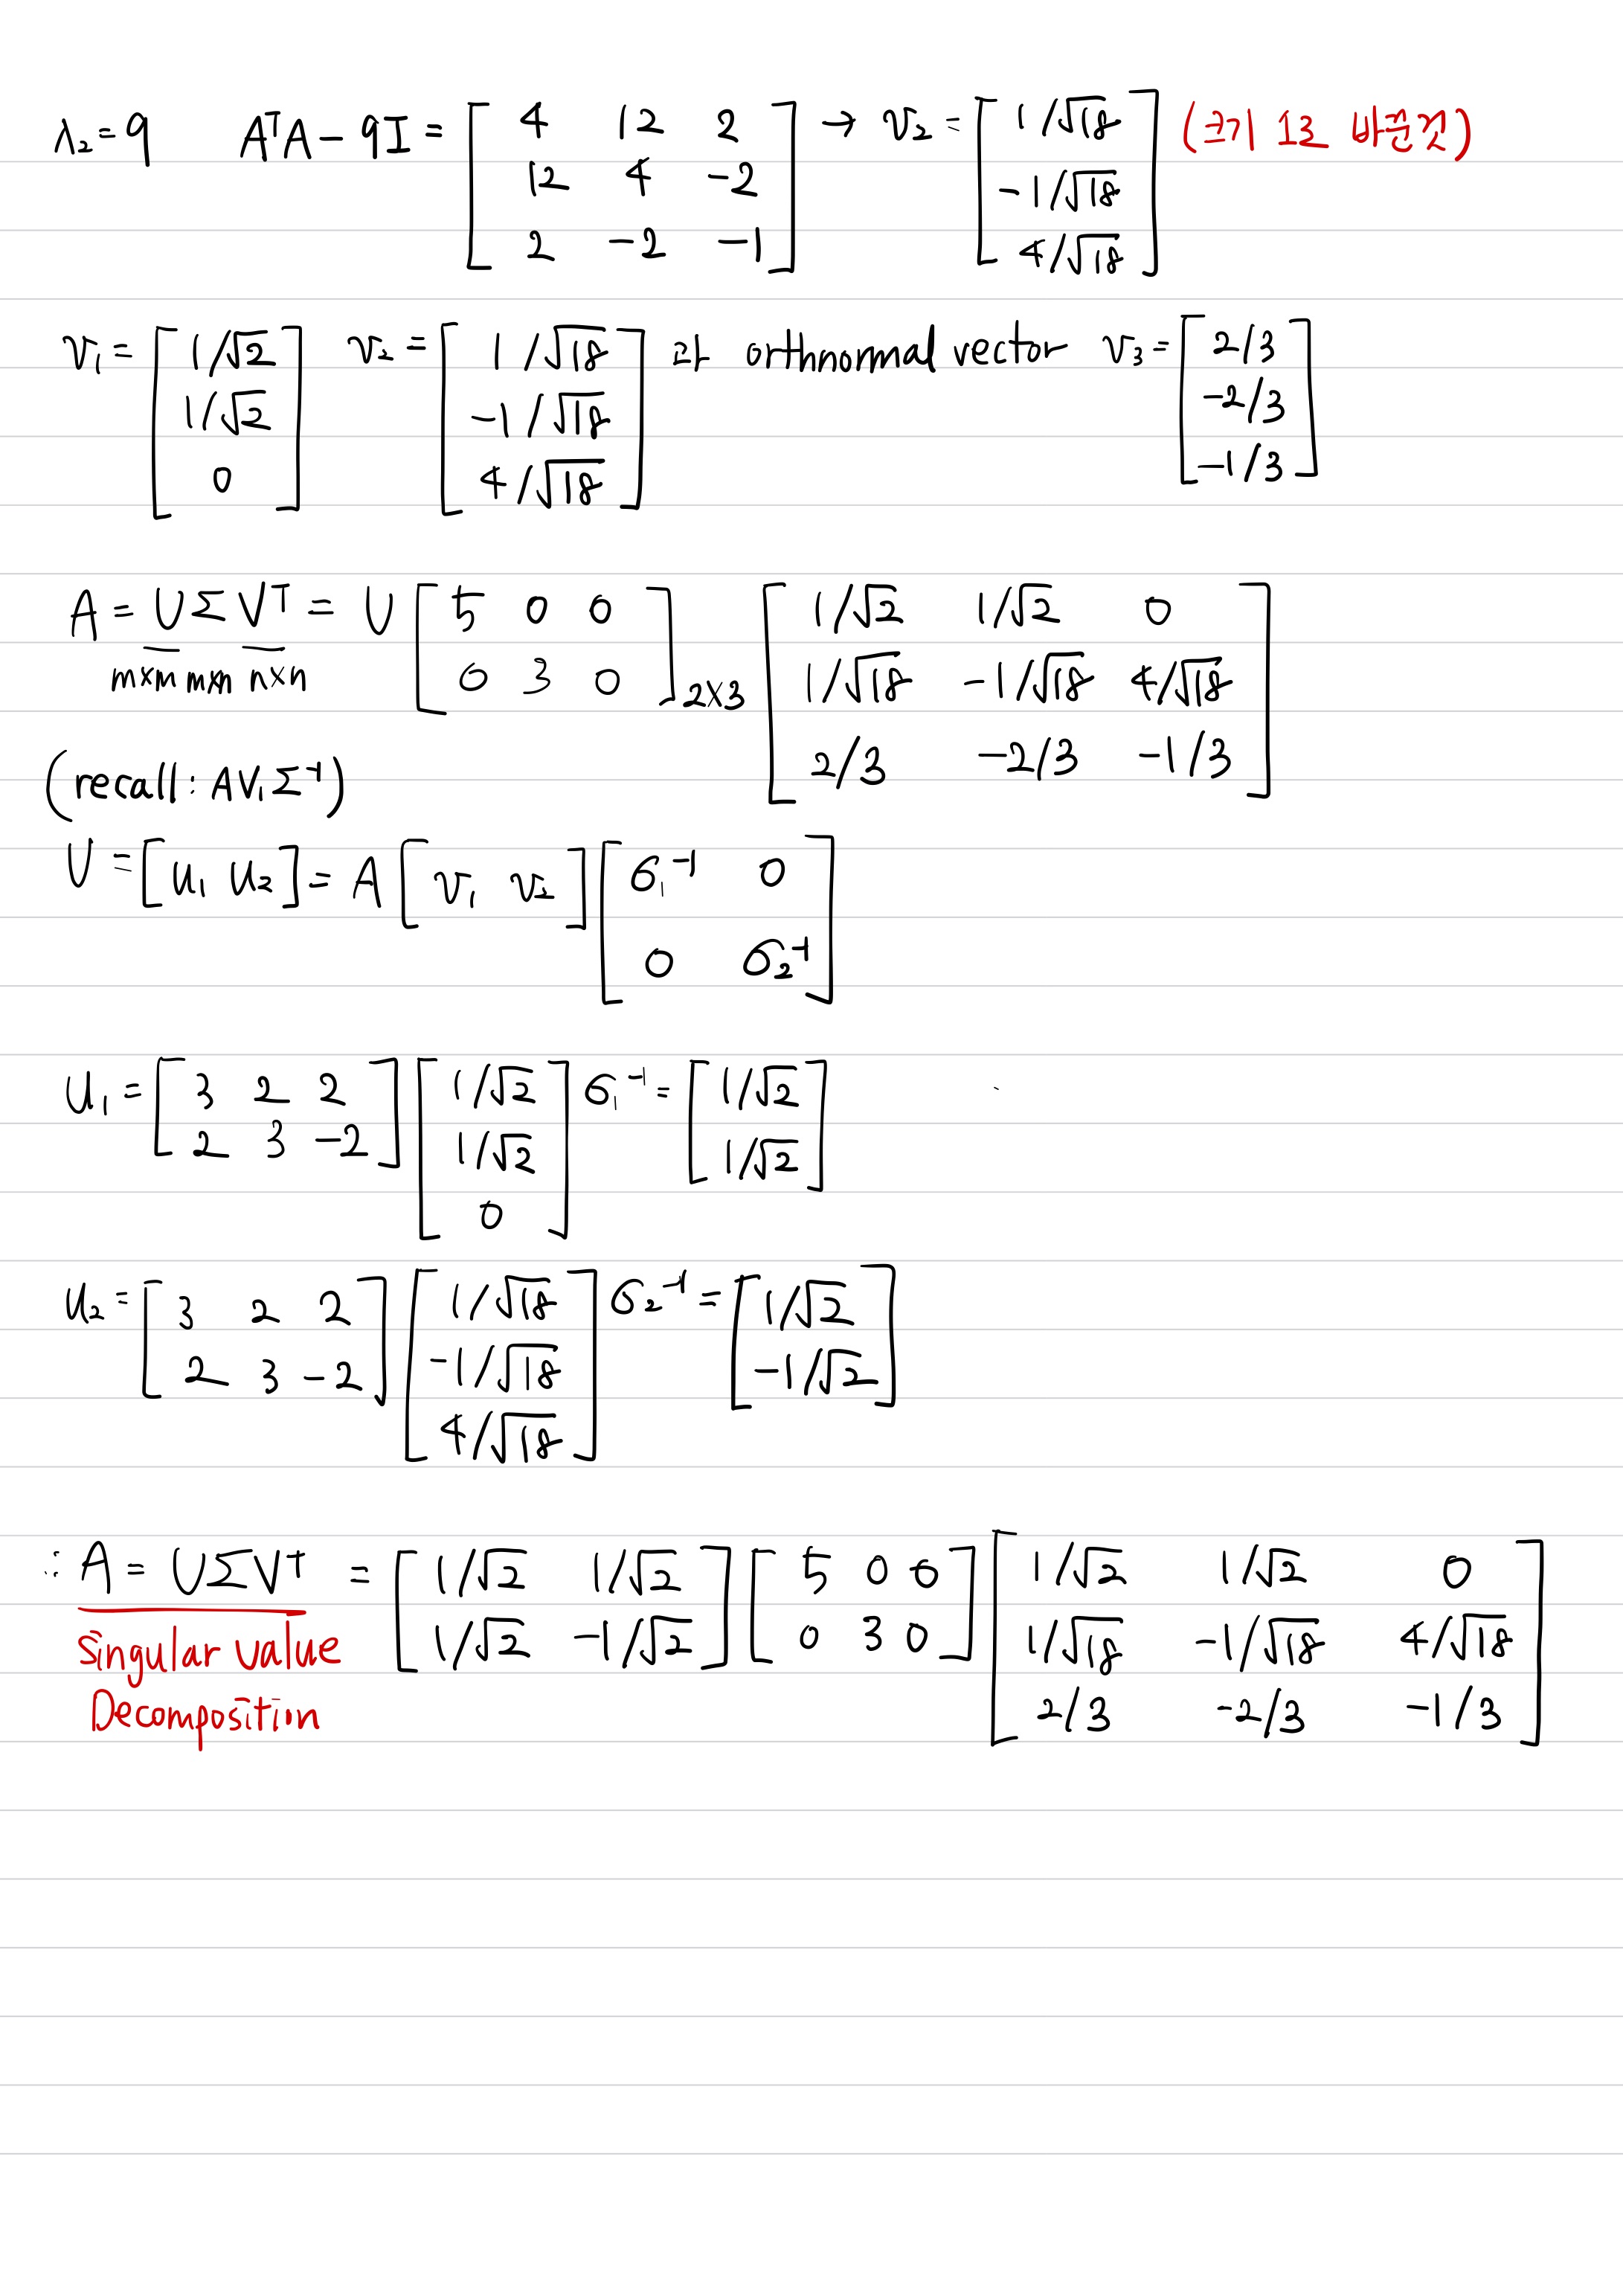 λ₂=9 AᵀA−9I = [4 12 2; 12 4 −2; 2 −2 −1] → v₂ = [1/√18; −1/√18; 4/√18] (크기 1로 바꾼것)
v₁ = [1/√2; 1/√2; 0] v₂ = [1/√18; −1/√18; 4/√18] 와 orthnormal vector v₃ = [2/3; −2/3; −1/3]
A = UΣVᵀ = U [5 0 0; 0 3 0]2×3 [1/√2 1/√2 0; 1/√18 −1/√18 4/√18; 2/3 −2/3 −1/3]
m×m m×n n×n
(recall: AV₁Σ⁻¹)
U = [u₁ u₂] = A [v₁ v₂] [σ₁⁻¹ 0; 0 σ₂⁻¹]
u₁ = [3 2 2; 2 3 −2] [1/√2; 1/√2; 0] σ₁⁻¹ = [1/√2; 1/√2]
u₂ = [3 2 2; 2 3 −2] [1/√18; −1/√18; 4/√18] σ₂⁻¹ = [1/√2; −1/√2]
∴ A = UΣVᵀ = [1/√2 1/√2; 1/√2 −1/√2] [5 0 0; 0 3 0] [1/√2 1/√2 0; 1/√18 −1/√18 4/√18; 2/3 −2/3 −1/3]
Singular value
Decomposition